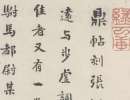 鼎帖刻張
遠与步虚詞
隹者又有一
駙馬都尉某